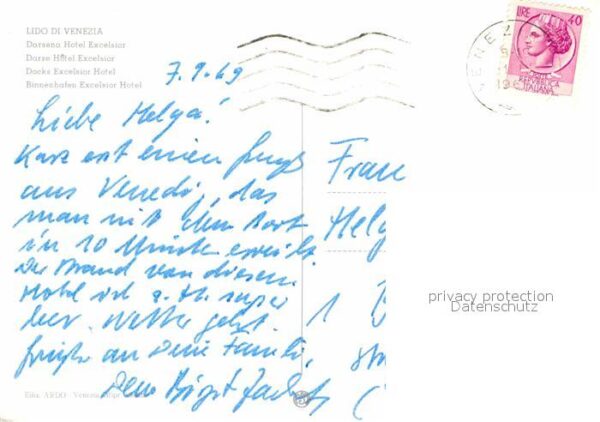 LIDO DI VENEZIA
Darsena Hotel Excelsior
Darse Hôtel Excelsior
Docks Excelsior Hotel
Binnenhafen Excelsior Hotel
7.9.69
Liebe Helga!
Kurz erst einen
aus Venedig, das
man mit dem Boot
in 10 Minuten erreicht
Der Strand von diesem
Hotel ist z. Zt. super
leer. Wetter geht.
an Deine Familie,
Deine Birgit
Frau
Helg
1 B
LIRE 40
REPUBBLICA
ITALIANA
VENEZ
196
privacy protection
Datenschutz
Ediz. ARDO - Venezia